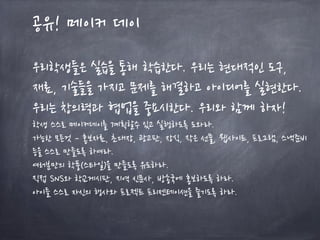 공유! 메이커 데이
우리학생들은 실습을 통해 학습한다. 우리는 현대적인 도구,
재료, 기술들을 가지고 문제를 해결하고 아이디어를 실현한다.
우리는 창의력과 협업을 중요시한다. 우리와 함께 하자!
학생 스스로 메이커데이를 계획할수 있고 실행하도록 도와라.
가능한 모든것 - 홍보자료, 초대장, 광고판, 장식, 작은 선물, 웹사이트, 프로그램, 스낵준비
등을 스스로 만들도록 하여라.
여러분만의 학풍(스타일)을 만들도록 유도하라.
직접 SNS와 학교게시판, 지역 신문사, 방송국에 홍보하도록 하라.
아이들 스스로 자신의 행사와 프로젝트 프리젠테이션을 즐기도록 하라.